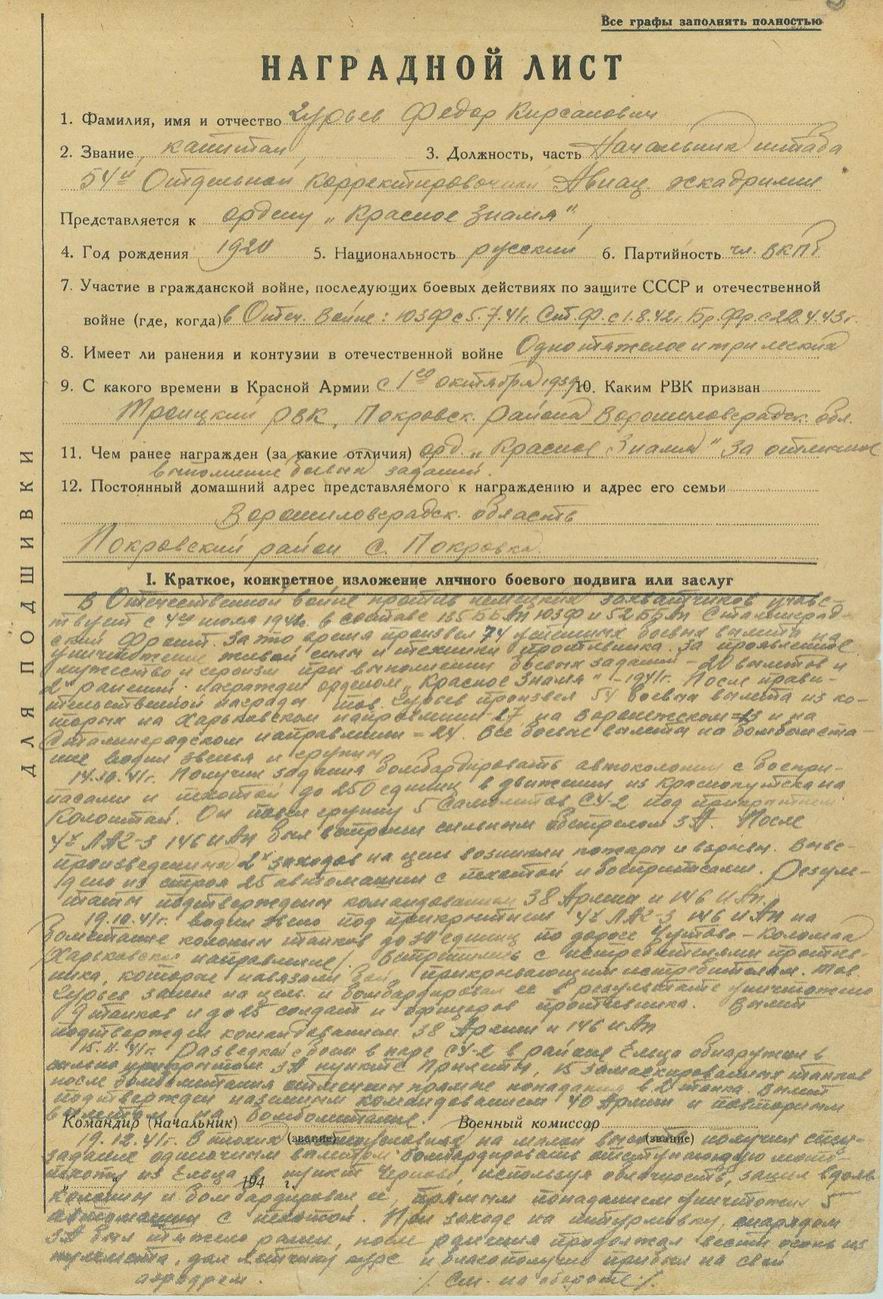 Все графы заполнять полностью
НАГРАДНОЙ ЛИСТ
1. Фамилия, имя и отчество Гурьев Федор Кирсанович
2. Звание капитан 3. Должность, часть Начальник штаба
54й Отдельной Корректировочной Авиац. эскадрилии
Представляется к ордену "Красное Знамя"
4. Год рождения 1920 5. Национальность русский 6. Партийность чл. ВКПб
7. Участие в гражданской войне, последующих боевых действиях по защите СССР и отечественной
войне (где, когда) в Отеч. Войне: ЮЗФ с 5.7.41г. Ст.Ф. с 1.8.42г. Бр.Фр. с 22.4.43г.
8. Имеет ли ранения и контузии в отечественной войне Одно тяжелое и три легких
9. С какого времени в Красной Армии с 1го октября 1939 10. Каким РВК призван
Троицким РВК, Покровск. района Ворошиловградск. обл.
11. Чем ранее награжден (за какие отличия) орд. "Красное Знамя" за отличное
выполнение боевых заданий.
12. Постоянный домашний адрес представляемого к награждению и адрес его семьи
Ворошиловградск. область
Покровский район с. Покровка
I. Краткое, конкретное изложение личного боевого подвига или заслуг
В Отечественной войне против немецких захватчиков участ-
твует с июля 1941г. в составе ББАп ЮЗФ и 52ББАп Сталинград-
ский Фронт. За это время произвел 74 успешных боевых вылета на
уничтожение живой силы и техники противника. За проявленное
мужество и героизм при выполнении боевых заданий - 20 вылетов и
2 ранения награжден орденом "Красное Знамя" - 1941г. После прави-
тельственной награды тов. Гурьев произвел 54 боевых вылета из ко-
торых на Харьковском направлении 27 на Воронежском и на
Сталинградском направлении = 24. Все боевые вылеты на бомбомета-
ние водил звенья и группы
14.10.41г. Получил задания бомбардировать автоколонну с боепри-
пасами и пехотой до 250 единиц в движении из Краснокутска на
Коломак. Он повел группу 5 Самолетов СУ-2 под прикрытием
4х ЛАГ-3 146 ИАп был встречен сильным обстрелом ЗА. После
произведенных 2х заходов на цель возникли пожары и взрывы. Выве-
дено из строя 25 автомашин с пехотой и боеприпасами. Резуль-
таты подтверждены командованием 38 Армии и 146 ИАп.
19.10.41г. водил звено под прикрытием 4х ЛАГ-3 146 ИАп на
бомбометание колонны танков до 30 единиц по дороге Чутово - Коломак
/Харьковское направление/. Встретились с истребителями против-
ника, которые навязали бой, прикрывающим истребителям. Тов.
Гурьев зашел на цель и бомбардировал ее в результате уничтожено
танков и до 25 солдат и офицеров противника. Вылет
подтвержден командованием 38 Армии и 146 ИАп
15.11.41г. Разведкой с боем в паре СУ-2 в районе Ельца обнаружил в
сильно прикрытом ЗА пункте 15 замаскированных танков
после бомбометания отмечены прямые попадания в танка. Вылет
подтвержден наземным командованием 40 Армии и повторным
вылетом на бомбометание.
Командир (начальник) Военный комиссар
(звание) (звание)
19.12.41г. В на малой получил
задание одиночным вылетом бомбардировать отступающую мото-
пехоту из Ельца в пункт используя облачность, зашел вдоль
колонны и бомбардировал ее, прямым попаданием уничтожен 5
194 г.
автомашин с пехотой. При заходе на штурмовку, снарядом
ЗА был тяжело ранен, после ранения продолжал вести огонь из
пулемета, дал летчику курс и благополучно прибыл на свой
аэродром. /См. на обороте/.
ДЛЯ ПОДШИВКИ